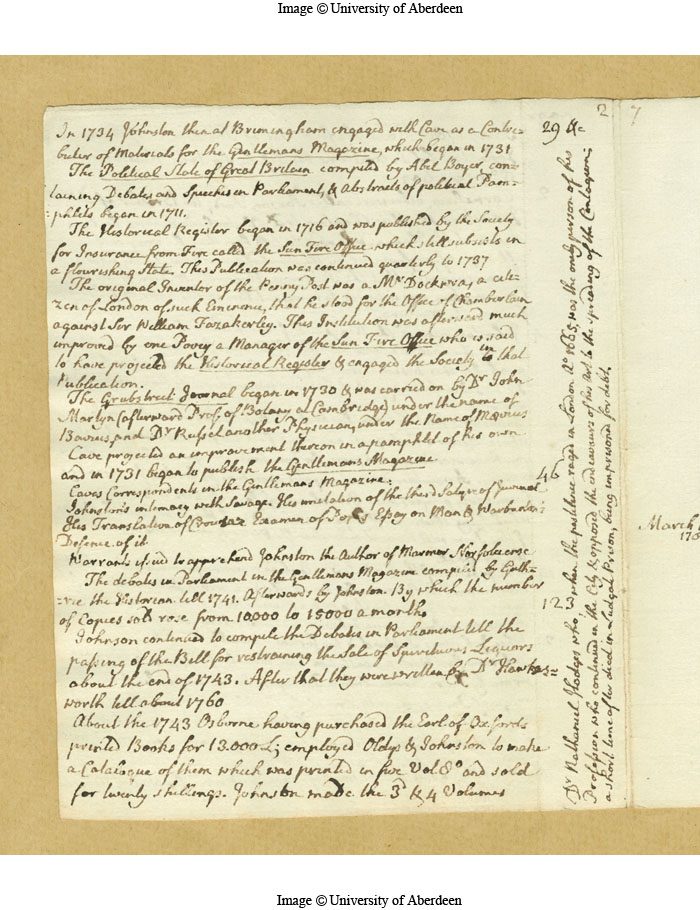 Image © University of Aberdeen
2
7
In 1734 Johnston then at Brimingham engaged with Cave as a Contri=
butor of Materials for the Gentlemans Magazine, which began in 1731
29 &c
The Political State of Great Britain compiled by Abel Boyer, con=
taining Debates and Speeches in Parliament, & Abstracts of political Pam=
=phlets began in 1711.
The Historical Register began in 1716 and was published by the Society
for Insurance from Fire called the Sun Fire Office which still subsists in
a flourishing State. This Publication was continued quarterly to 1737
The original Inventor of the Penny Post was a Mr Dockwra, a citi=
zen of London of such Eminence, that he stood for the Office of Chamberlain
against Sir William Fazakerley. This Institution was afterward much
improved by one Povey a Manager of the Sun Fire Office who is said
to have projected the Historical Register & engaged the Society in that
Publication.
The Grubstreet Journal began in 1730 & was carried on by Dr John
Martyn (afterward Prof. of Botany at Cambridge) under the name of
Bavius, and Dr Russel another Physician, under the Name of Mævius
Cave projected an improvement thereon in a pamphlet of his own
and in 1731 began to publish the Gentlemans Magazine
Caves Correspondents in the Gentlemans Magazine:
46
Johnstons intimacy with Savage. His imitation of the third Satyre of Juvenal
His Translation of Crousaz Examen of Pope's Essay on Man & Warburton's
Defence of it
Warrants issued to apprehend Johnston the Author of Marmor Norfolciense
The debates in Parliament in the Gentlemans Magazine compiled by Guth=
=rie the Historian till 1741. Afterwards by Johnston. By which the number
123
of Copies sold rose from 10,000 to 15000 a month
Johnson continued to compile the Debates in Parliament till the
passing of the Bill for restraining the Sale of Spirituous Liquors
about the end of 1743. After that they were written by Dr Hawkes=
worth till about 1760
About the 1743 Osborne having purchased the Earl of Oxfords
printed Books for 13.000 £; employed Oldys & Johnston to make
a Catalogue of them which was printed in five Vol. 8o and sold
for twenty shillings. Johnston made the 3d & 4 Volumes
Dr Nathaniel Hodges who, when the pestilence raged in London Ao 1665, was the only person of his
Profession who continued in the City & opposed the endeavours of his Art to the spreading of the Contagion;
a short time after died in Ludgat Prison, being imprisoned for debt.
March
Image © University of Aberdeen